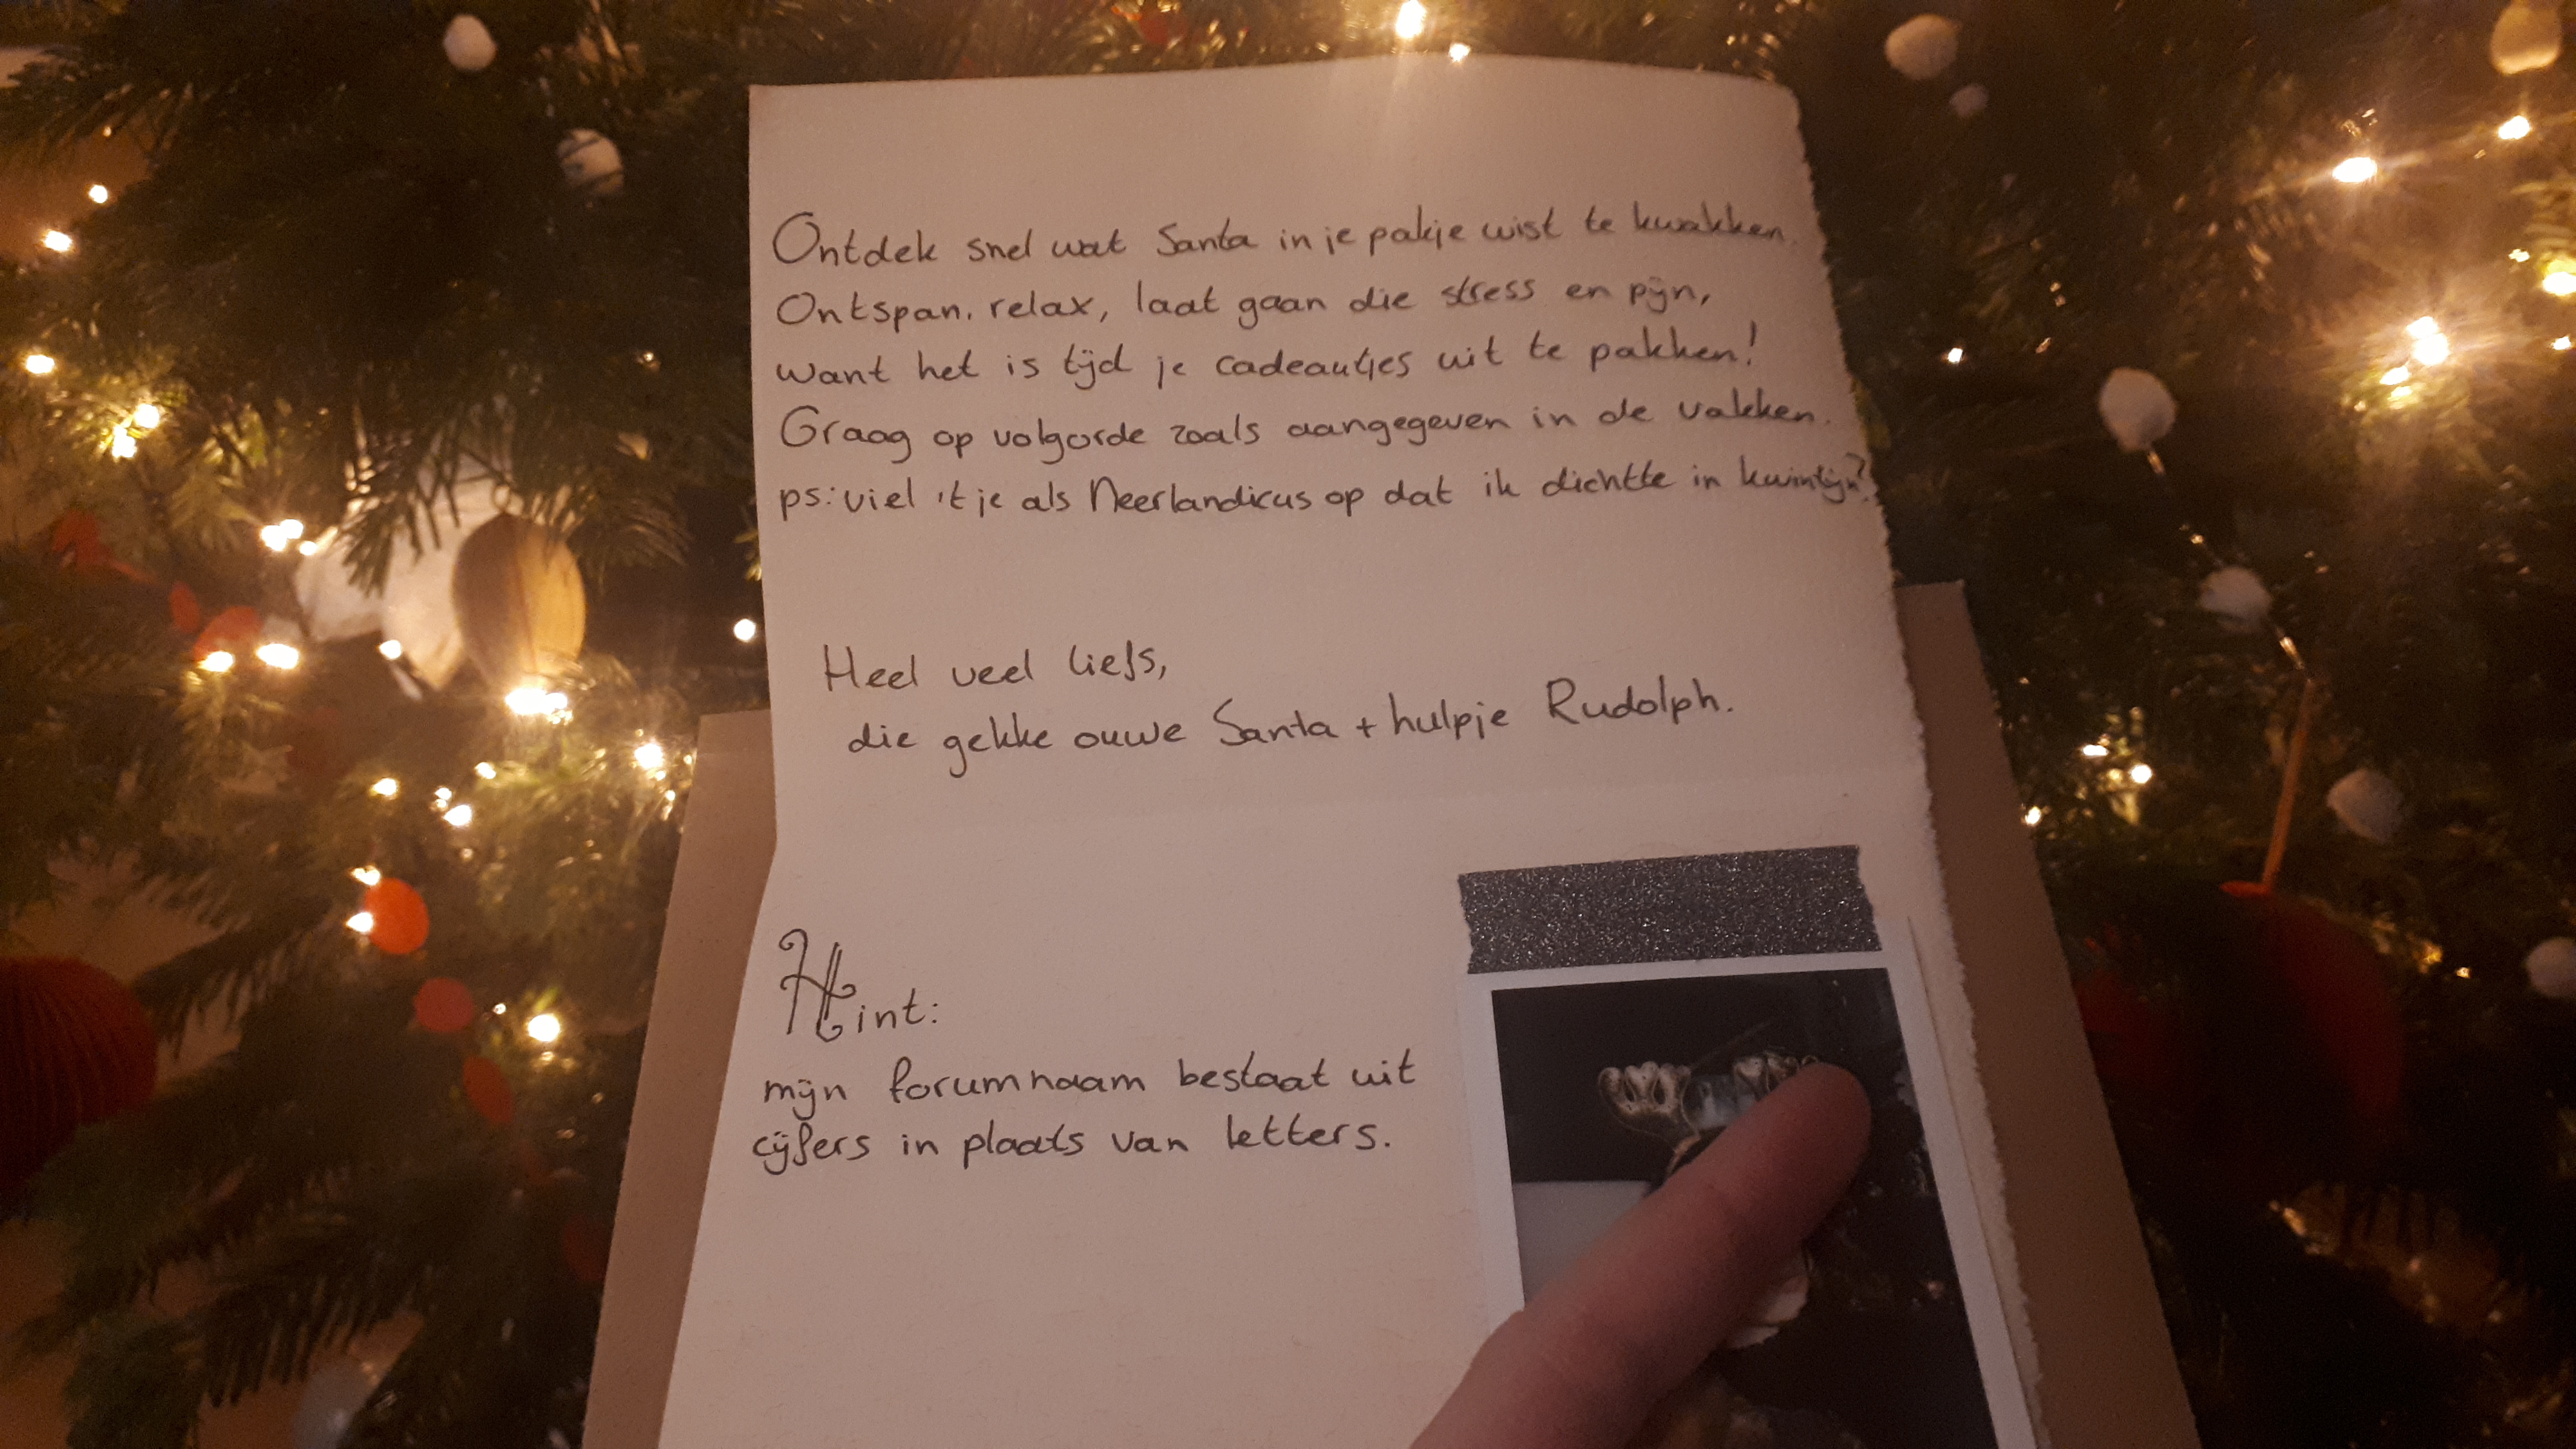 Ontdek snel wat Santa in je pakje wist te kwakken.
Ontspan, relax, laat gaan die stress en pijn,
want het is tijd je cadeautjes uit te pakken!
Graag op volgorde zoals aangegeven in de vakken.
ps: viel 't je als Neerlandicus op dat ik dichtte in kwintijn?
Heel veel liefs,
die gekke ouwe Santa + hulpje Rudolph.
Hint:
mijn forumnaam bestaat uit
cijfers in plaats van letters.